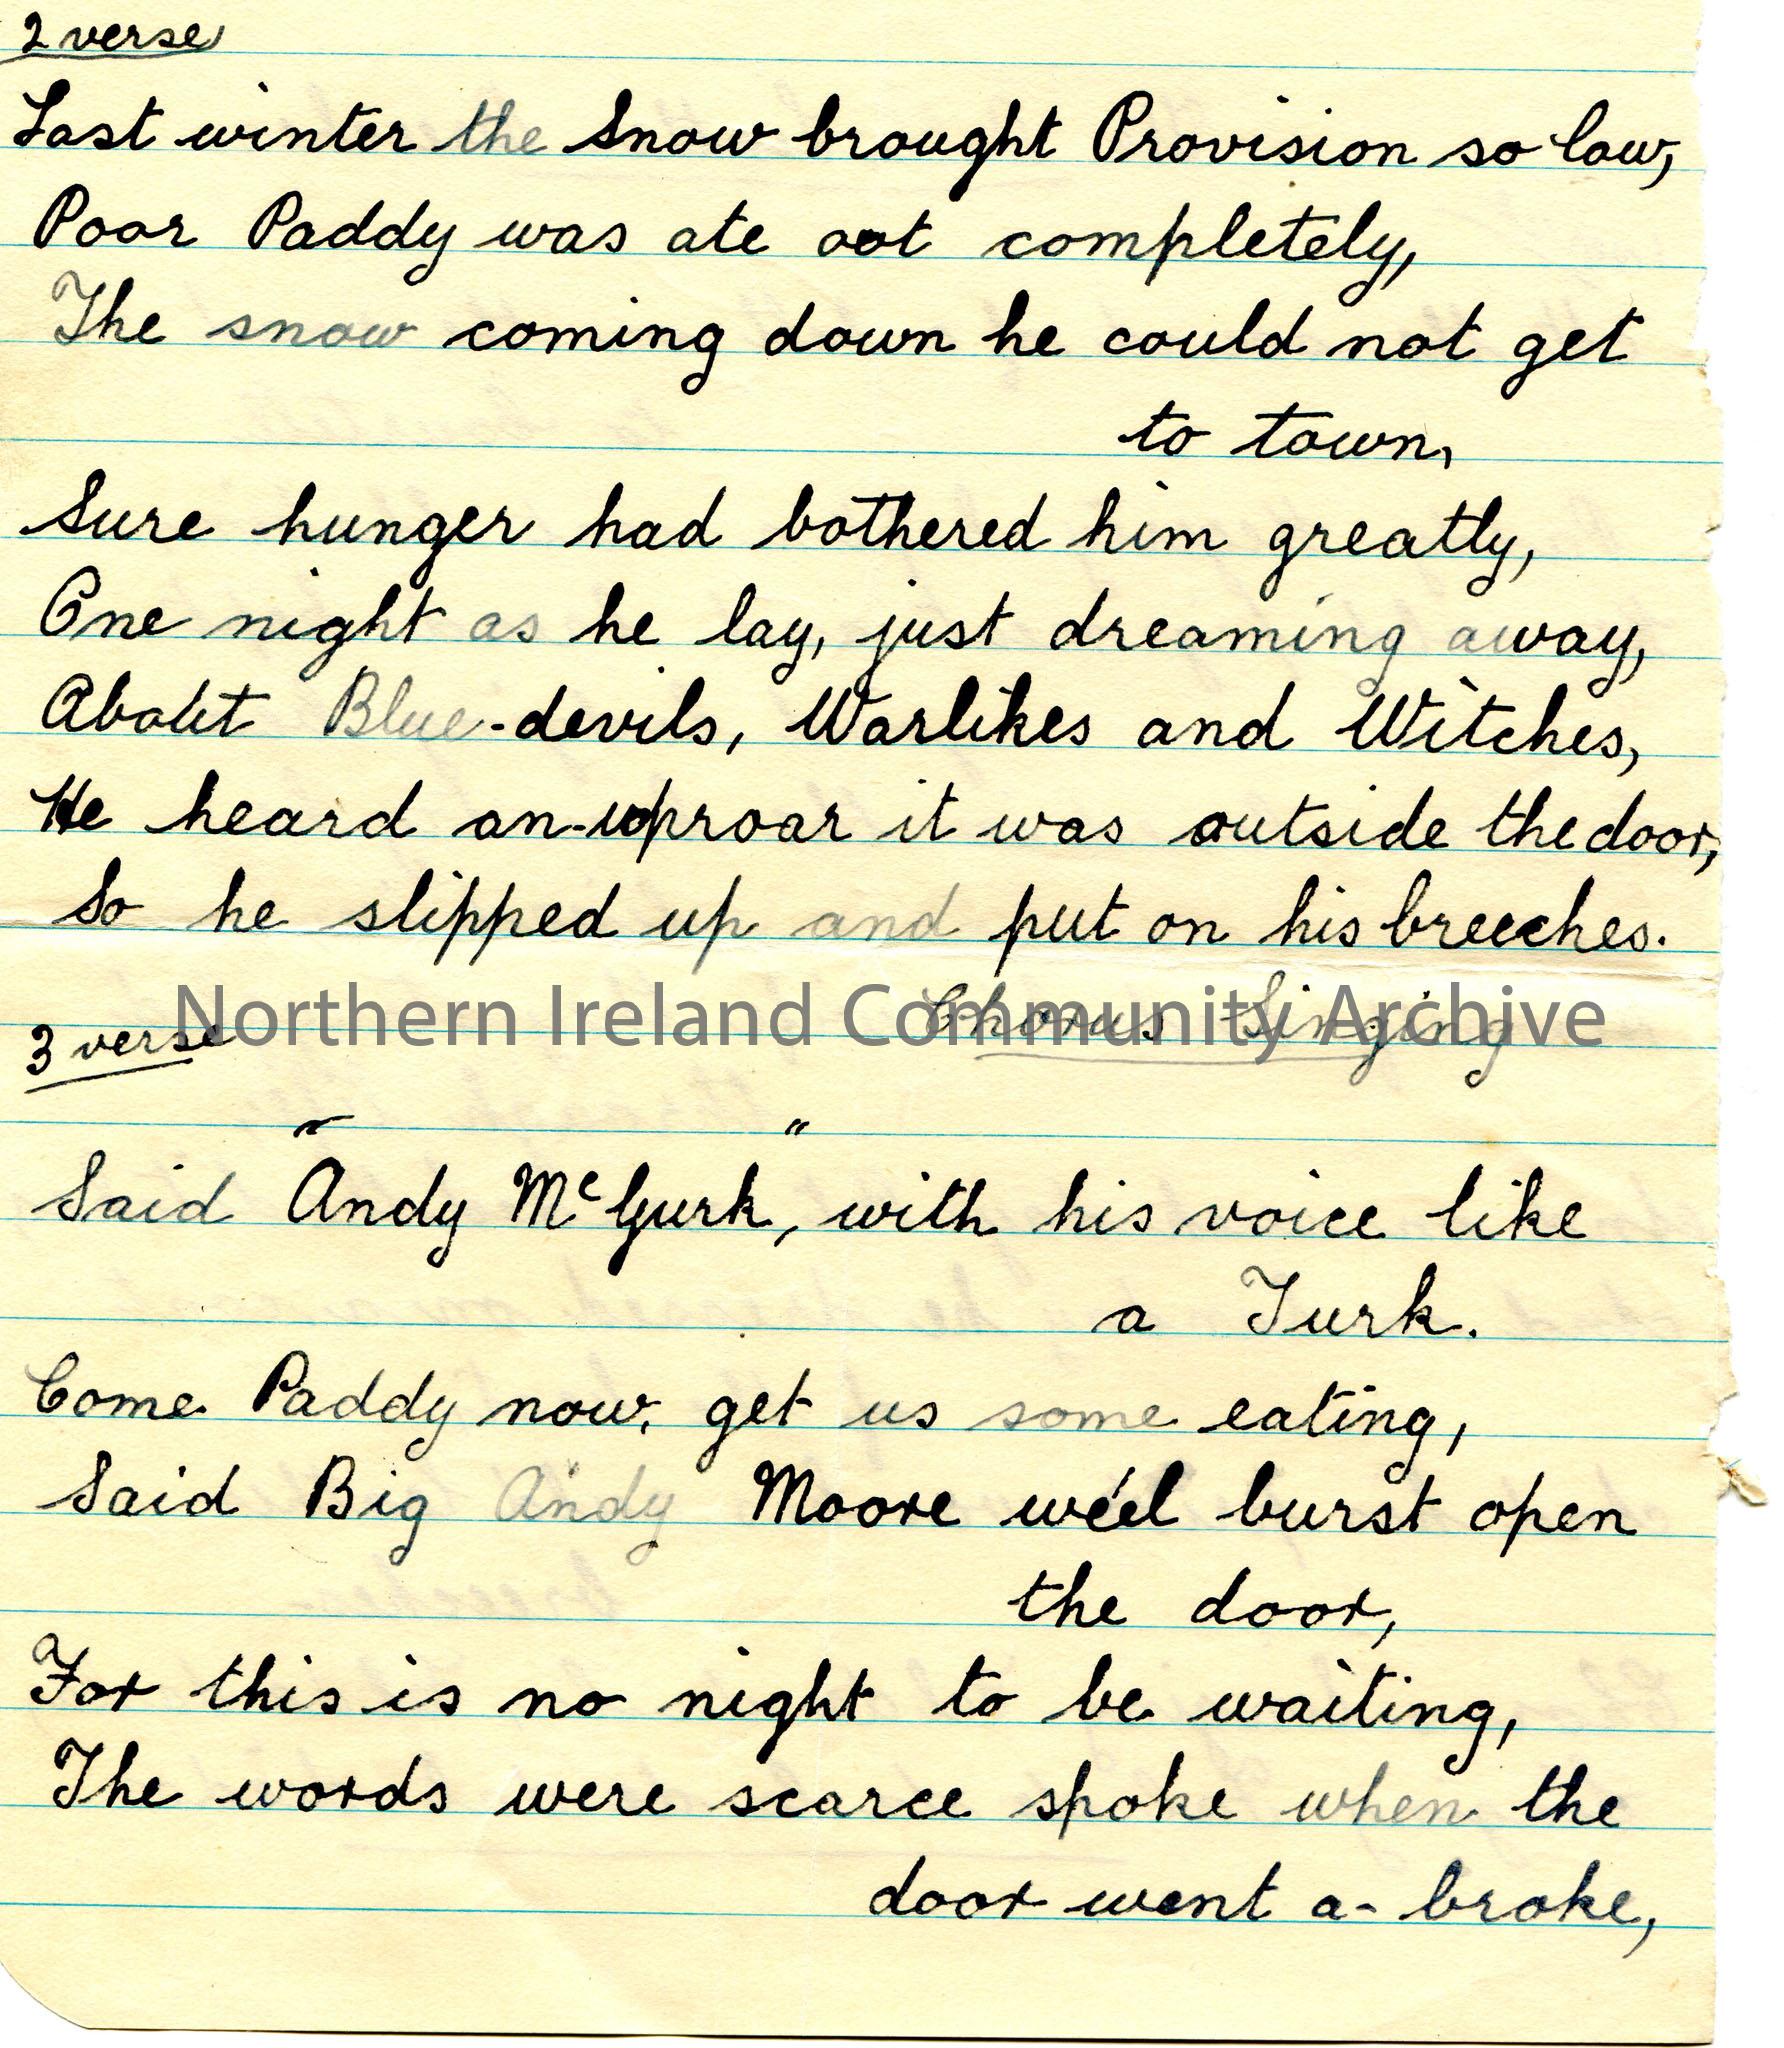 2 verse
Last winter the Snow brought Provision so low,
Poor Paddy was ate oot completely,
The snow coming down he could not get
to town,
Sure hunger had bothered him greatly,
One night as he lay, just dreaming away,
About Blue-devils, Warlikes and Witches,
He heard an-uproar it was outside the door,
So he slipped up and put on his breeches.
Chorus Singing
Northern Ireland Community Archive
3 verse
" "
Said Andy McGurk, with his voice like
a Turk.
Come Paddy now, get us some eating,
Said Big Andy Moore we'el burst open
the door,
For this is no night to be waiting,
The words were scarce spoke when the
door went a-broke,